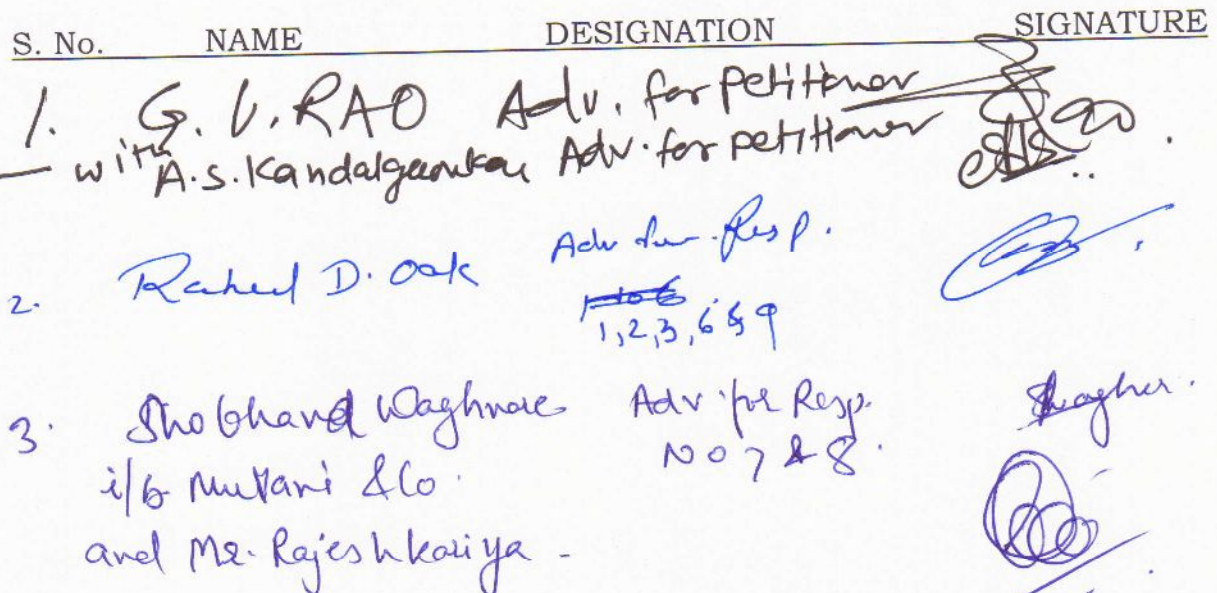 S. No. NAME DESIGNATION SIGNATURE
1. G. V. RAO Adv. for petitioner
— with A.S. Kandalgaonkar Adv. for petitioner
2. Rahul D. Oak Adv for Resp.
1,2,3,6 & 9
3. Shobhand Waghmare Adv for Resp.
i/b & Co. NO 7 & 8.
and Mr. Rajesh kariya -